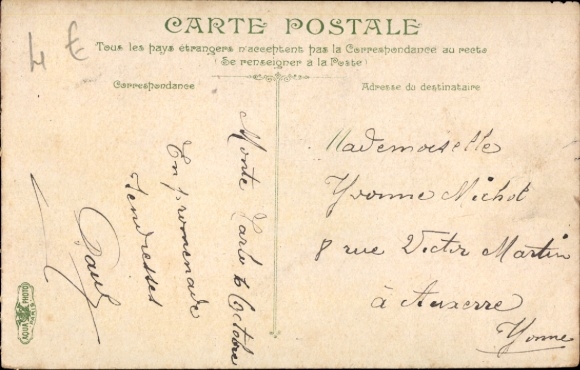 4 €
CARTE POSTALE
Tous les pays étrangers n'acceptent pas la Correspondance au recto
(Se renseigner à la Poste)
Correspondance
Adresse du destinataire
Monte Carlo 6 Octobre
En promenade
tendresses
Paul
Mademoiselle
Yvonne Michot
8 rue Victor Martin
à Auxerre
Yonne
AQUA PHOTO
PARIS